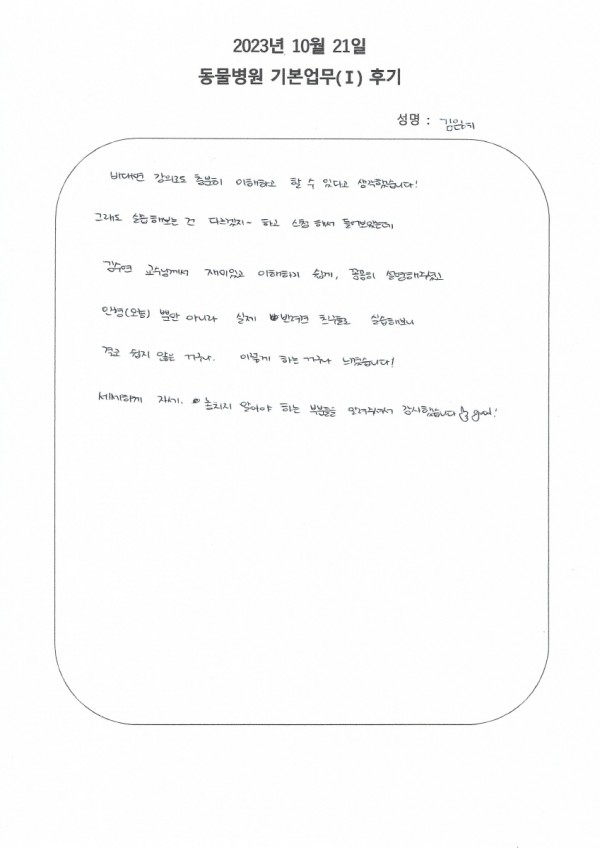 2023년 10월 21일
동물병원 기본업무(I) 후기
성명 :
비대면 강의로도 충분히 이해하고 할 수 있다고 생각했습니다!
그래도 실습해보는 건 다르겠지~ 하고 신청해서 들어보았는데
김수연 교수님께서 재미있고 이해하기 쉽게, 꼼꼼히 설명해주셨고
인형(모형) 뿐만 아니라 실제 반려견 친구들로 실습해보니
결코 쉽지 않은 거구나. 이렇게 하는 거구나 느꼈습니다!
세세하게 자세. 놓치지 않아야 하는 부분들을 알려주셔서 감사했습니다 good!